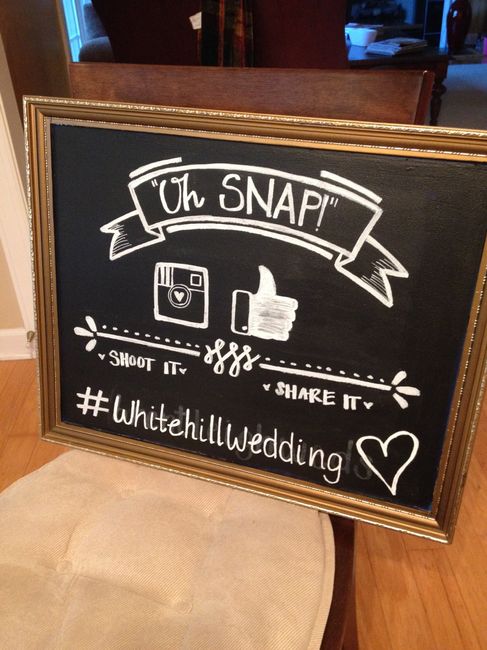 "Oh SNAP!"
SHOOT IT
SHARE IT
#WhitehillWedding